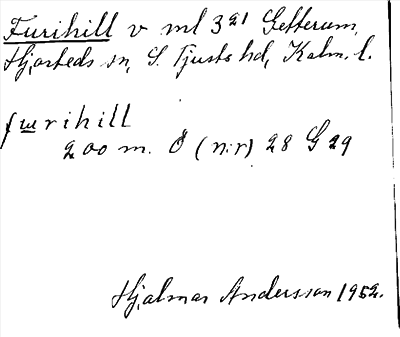 Furihill v ml 3²¹ Getterum,
Hjorteds sn, S. Tjusts hd, Kalm. l.
furihill
200 m. Ö (n:r) 28 G 29
Hjalmar Andersson 1952.